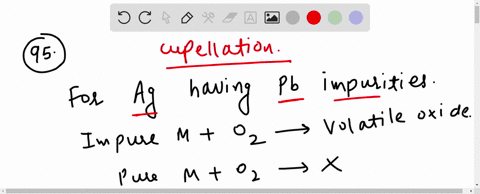 95.
cupellation.
For Ag having Pb impurities.
Impure M + O₂ ⟶ Volatile oxide.
Pure M + O₂ ⟶ X